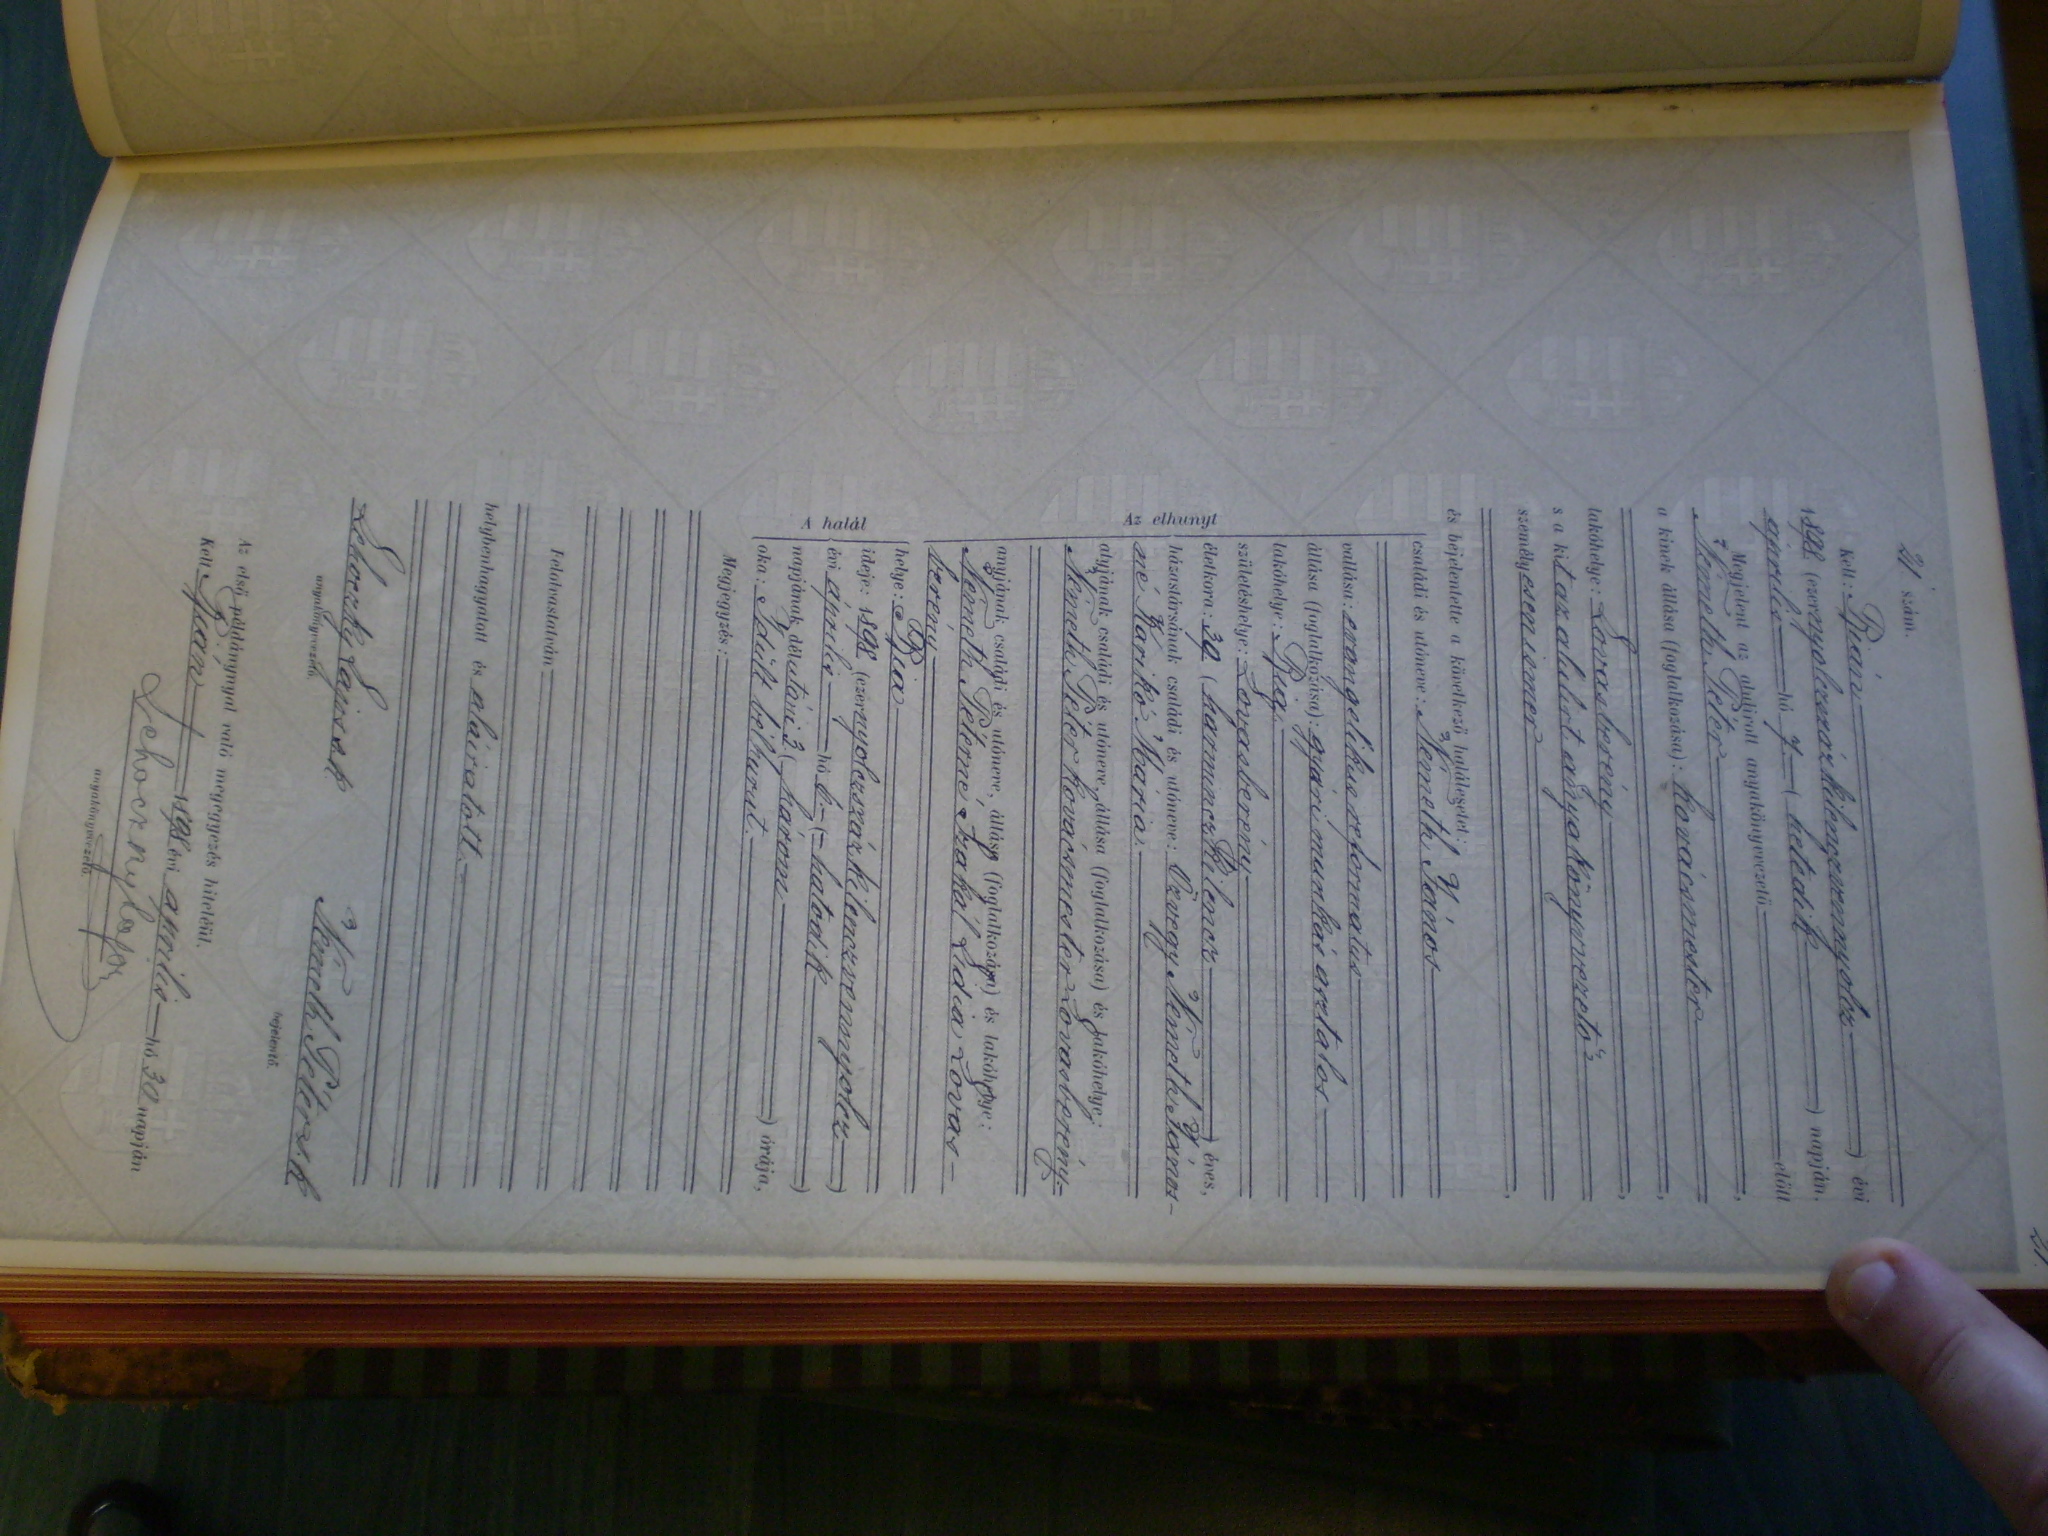 21.
21 szám.
Kelt: Bián
1898 (ezernyolczszázkilenczvennyolcz) évi
április hó 7 (hetedik) napján,
Megjelent az alulirott anyakönyvvezető előtt
Németh Péter,
a kinek állása (foglalkozása): kovácsmester,
lakóhelye: Lovasberény,
s a kit az alulirt anyakönyvvezető
személyesen ismer,
és bejelentette a következő halálesetet:
Az elhunyt
családi és utóneve: Németh János
vallása: evangelikus reformatus
állása (foglalkozása): gyári munkás
lakóhelye: Bia
születéshelye: Lovasberény
életkora: 39 (harminczkilencz) éves,
házastársának családi és utóneve: Özvegy Németh János-
né Marikó Mária.
atyjának családi és utóneve, állása (foglalkozása) és lakóhelye:
Németh Péter kovácsmester Lovasberény.
anyjának családi és utóneve, állása (foglalkozása) és lakóhelye:
Németh Péterné, Szakál Lidia, Lovas-
berény
A halál
helye: Bia
ideje: 1898 (ezernyolczszázkilenczvennyolcz)
évi április hó 6 (hatodik)
napjának délutáni 3 (három) órája,
oka: Idült bélhurut.
Megjegyzés:
Felolvastatván
helybenhagyatott és aláiratott.
Lehoczky Lajos s. k.
anyakönyvvezető.
Németh Péter s. k.
bejelentő.
Az első példánynyal való megegyezés hiteléül.
Kelt Bián 1898 évi április hó 30 napján
Lehoczky Lajos
anyakönyvvezető.